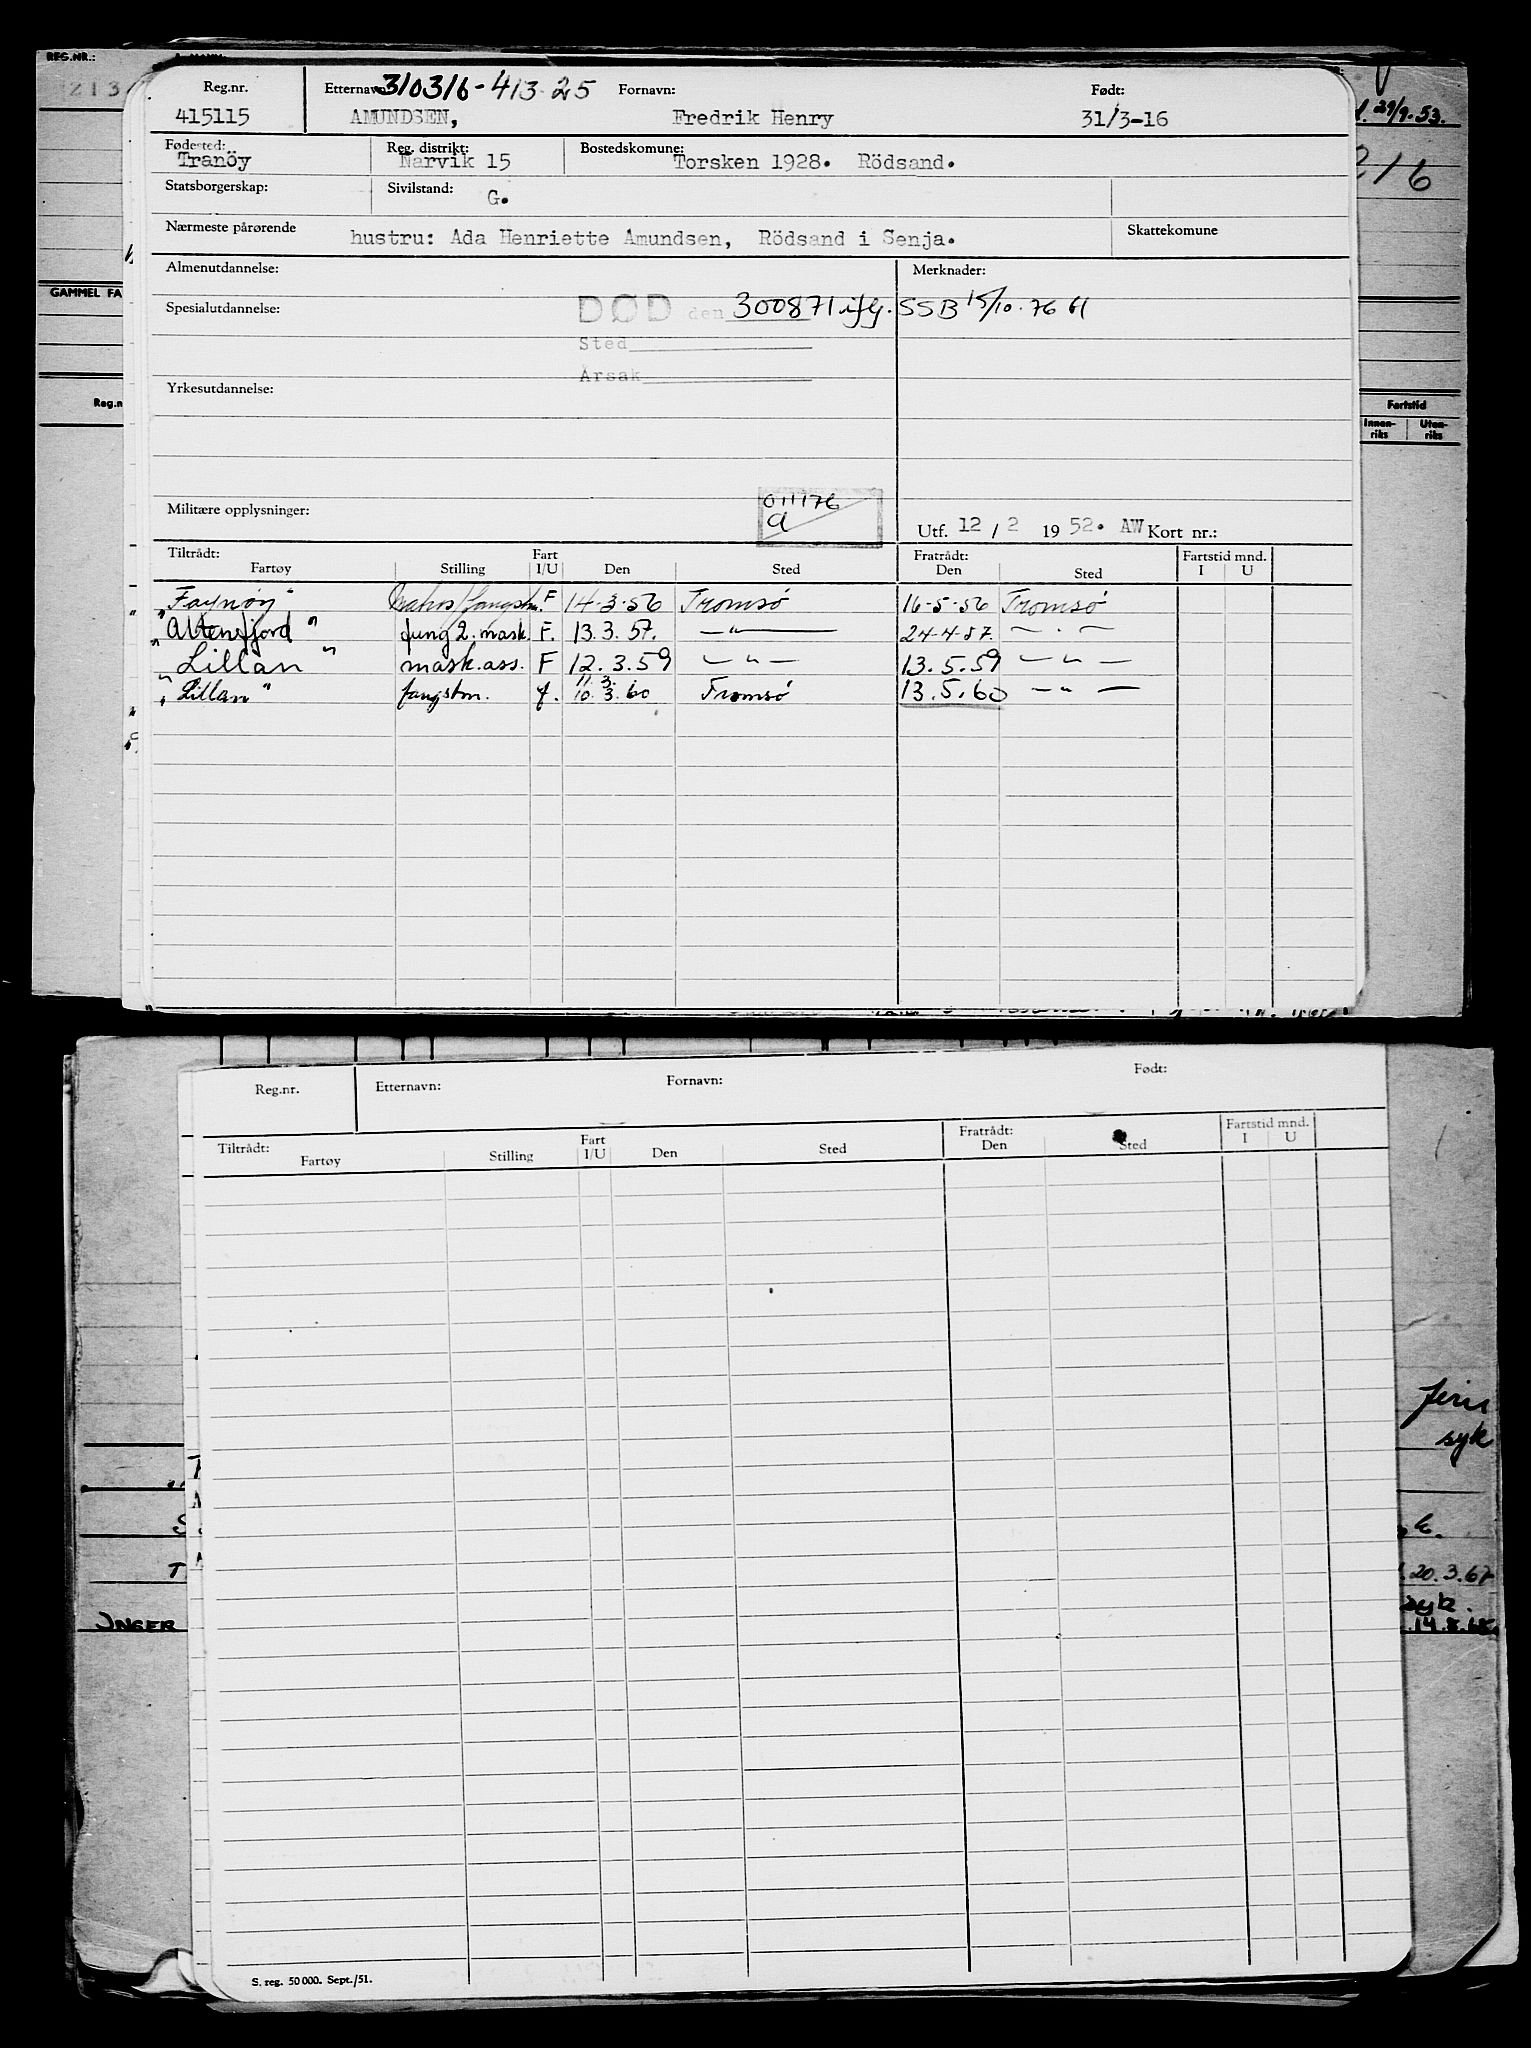 REG.NR.:
213
Reg.nr. Etternavn: 310316-413.25 Fornavn: Født:
415115 AMUNDSEN, Fredrik Henry 31/3-16
Fødested: Reg. distrikt: Bostedskomune:
Tranöy Narvik 15 Torsken 1928. Rödsand.
Statsborgerskap: Sivilstand: G.
Nærmeste pårørende hustru: Ada Henriette Amundsen, Rödsand i Senja. Skattekomune
Almenutdannelse: Merknader:
Spesialutdannelse: DØD den 300871 iflg. SSB 15/10.76
Sted
Årsak
Yrkesutdannelse:
Militære opplysninger: 011176
a
Utf. 12 / 2 19 52. AW Kort nr.:
Tiltrådt: Fart Fratrådt: Fartstid mnd.
Fartøy Stilling I/U Den Sted Den Sted I U
F 14-3-56 Tromsø 16-5-56 Tromsø
"Altenfjord" fung 2. mask. F. 13.3.57. — " — 24-4-57. — " —
"Lillan" mask.ass. F 12.3.59 — " — 13.5.59 — " —
11.3.
"Lillan" fangstm. f. 10.3.60 Tromsø 13.5.60 — " —
29/9.53.
216
GAMMEL FA
Reg.n
Fartstid
Innen-riks Uten-riks
Reg.nr. Etternavn: Fornavn: Født:
Tiltrådt: Fart Fratrådt: Fartstid mnd.
Fartøy Stilling I/U Den Sted Den Sted I U
syk
T
20.3.67
INGER syk.
S. reg. 50 000. Sept./51.